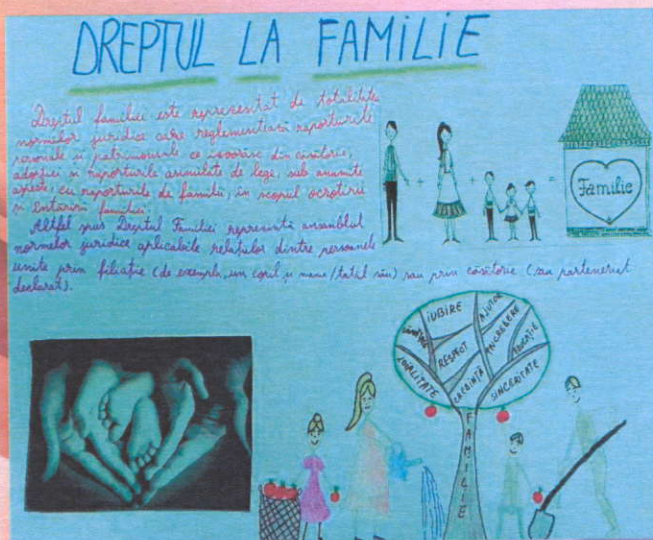 DREPTUL LA FAMILIE
Dreptul familiei este reprezentat de totalitatea
normelor juridice care reglementează raporturile
personale și patrimoniale ce izvorăsc din căsătorie,
adopției și raporturile asimilate de lege, sub anumite
aspecte, cu raporturile de familii, în scopul ocrotirii
și întăririi familiei.
Altfel spus Dreptul Familiei reprezintă ansamblul
normelor juridice aplicabile relațiilor dintre persoanele
unite prin filiație (de exemplu, un copil și mama/tatăl său) sau prin căsătorie (sau parteneriat
declarat).
+ + =
Familie
IUBIRE
AJUTOR
RESPECT
ÎNCREDERE
EDUCAȚIE
LOIALITATE
CREDINȚĂ
SINCERITATE
FAMILIE